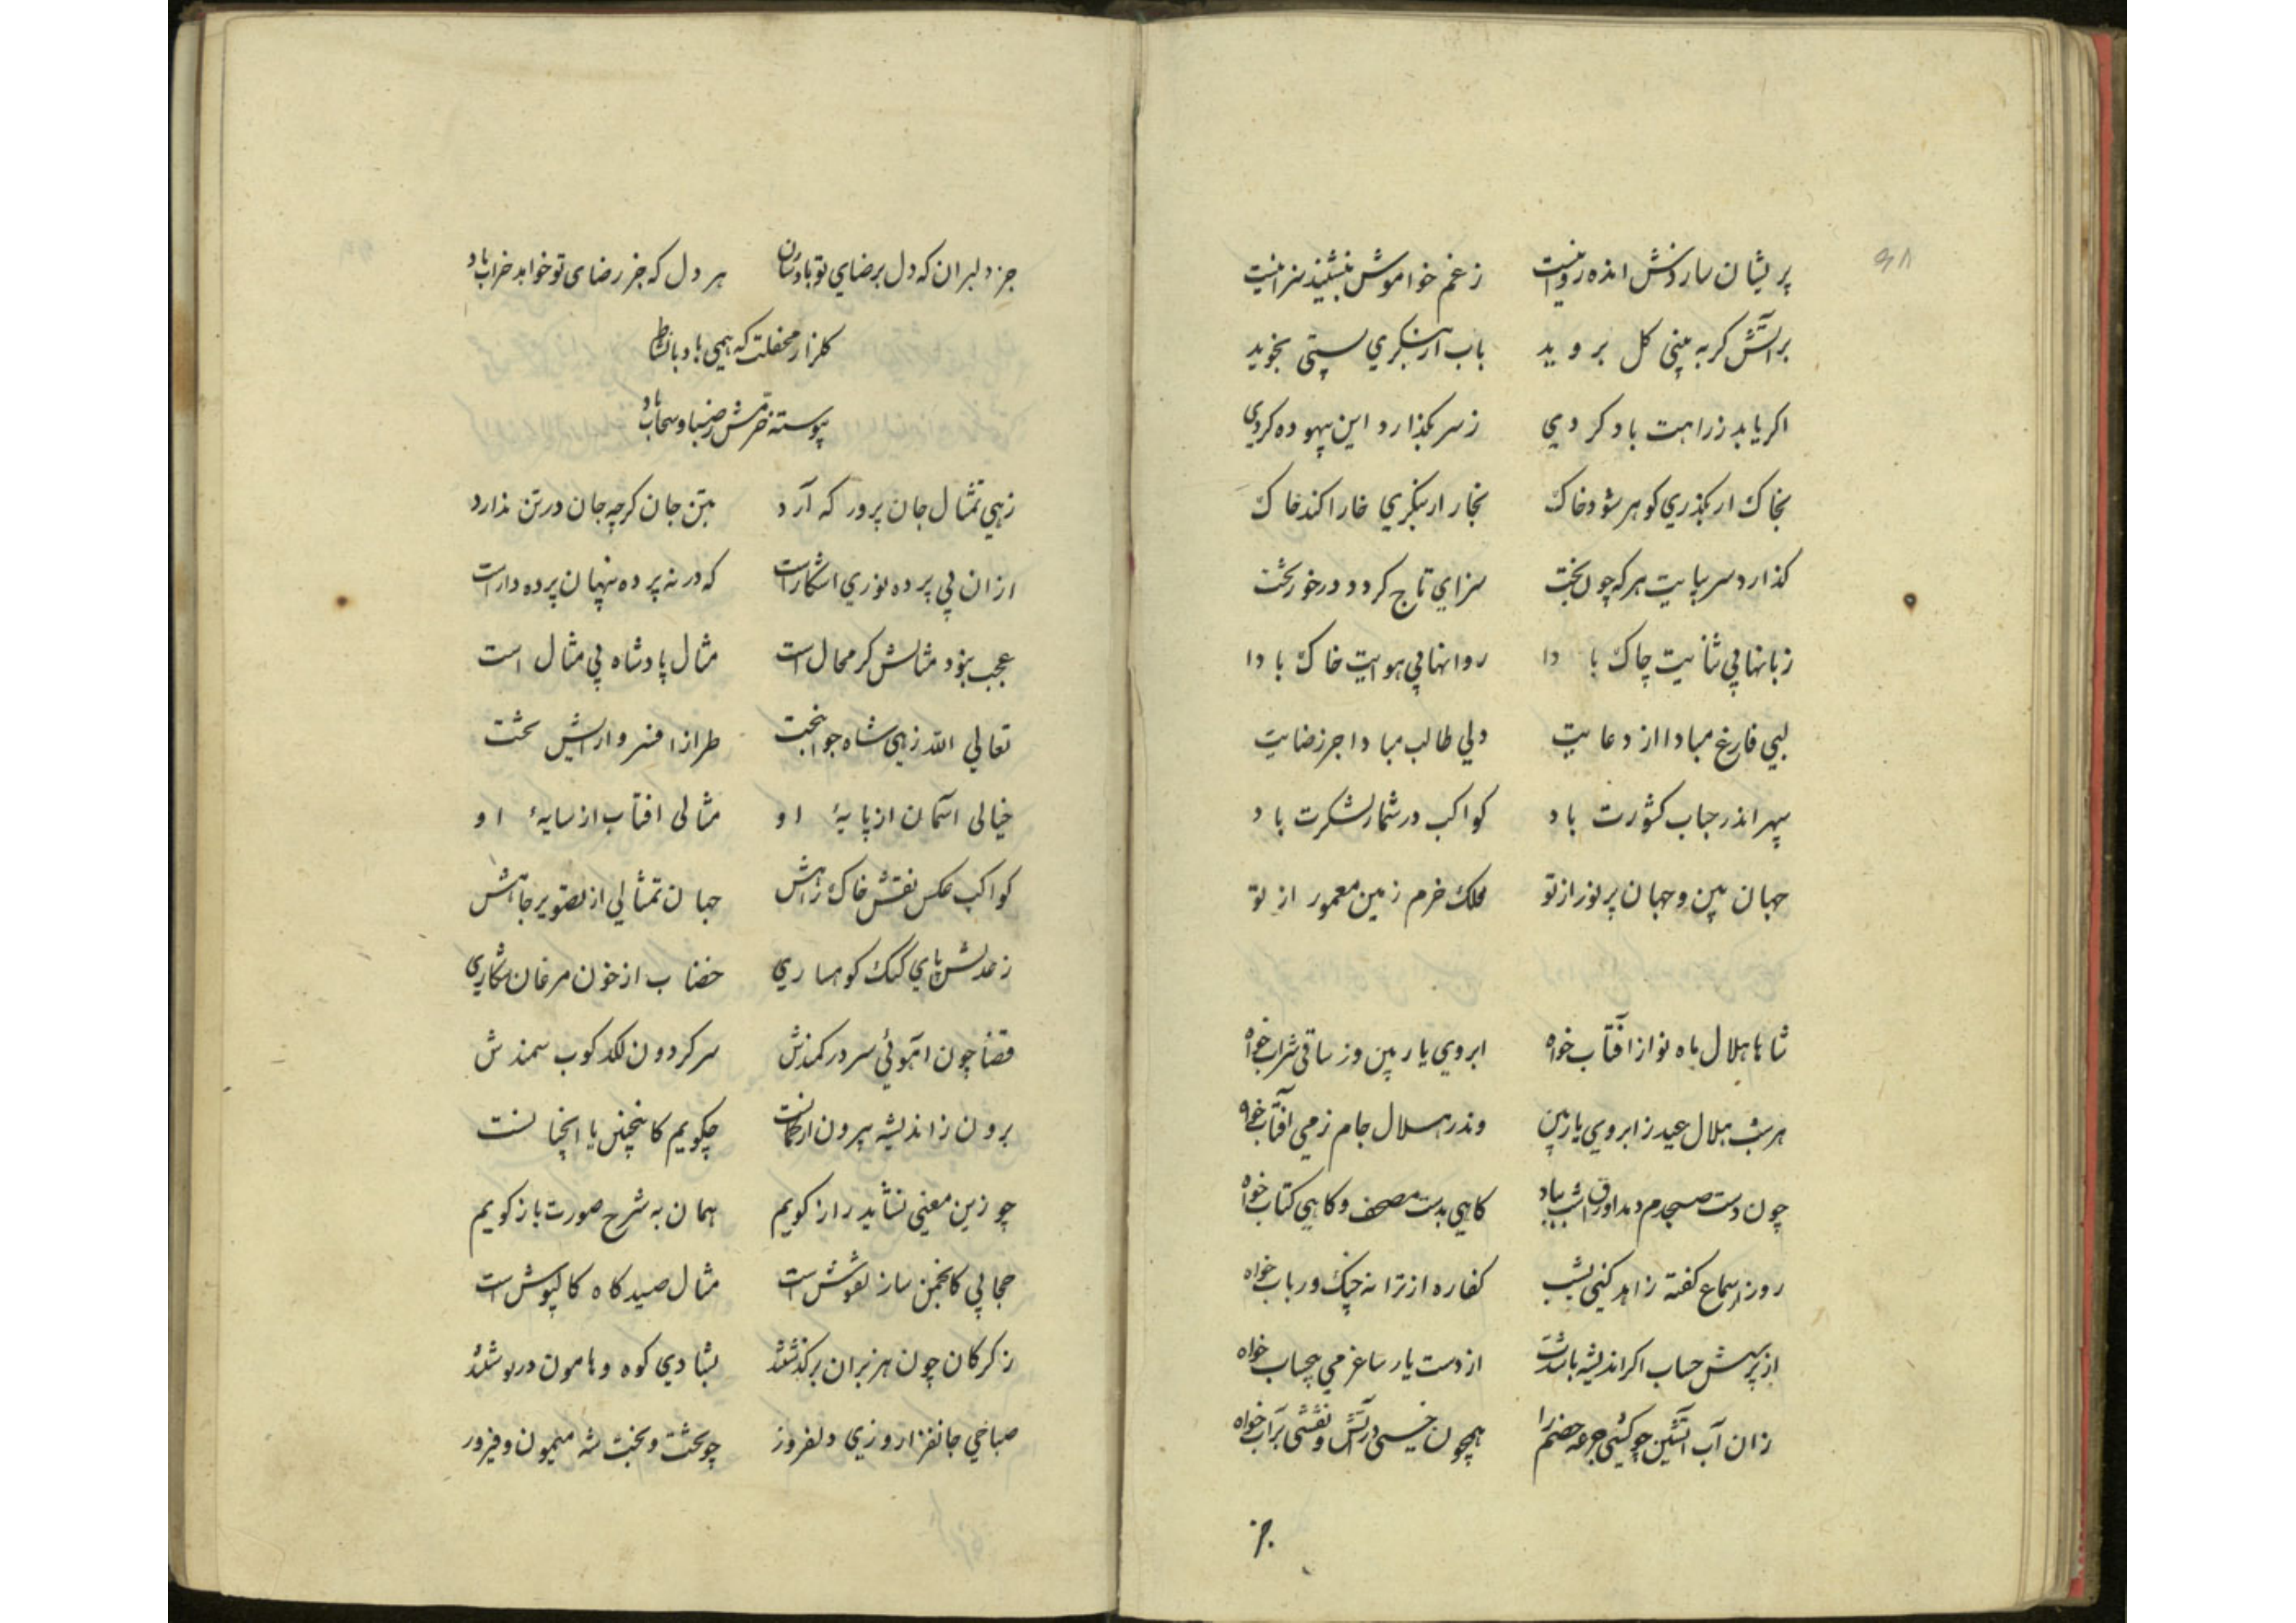 ۹۸
پریشان ساز دنش اندوه روا نیست زغم خواموش بنشیند سزا نیست
بر آتش کر به بینی کل بروید باب ار بنکری پستی بخوید
اکر یابد ز راهت باد کردی ز سر بکذارد این بیهوده کردی
بخاک ار بکذری کوهر شود خاک بخار ار بنکری خارا کند خاک
کذارد سر بپایت هر که چون بخت سزای تاج کردد درخور تخت
زبانها بی ثنایت چاک بادا روانها بی هوایت خاک بادا
لبی فارغ مبادا از دعایت دلی طالب مبادا جز رضایت
سپهر اندر جناب کشورت باد کواکب در شمار لشکرت باد
جهان بین و جهان پرنور از تو ملک خرم زمین معمور از تو
شاها هلال ماه نو از آفتاب خواه ابروی یار بین وز ساقی شراب خواه
هر شب هلال عید ز ابروی یار بین وندر هلال جام ز می آفتاب خواه
چون دست صبحدم دهد اوراق شب بباد کاهی بدست مصحف و کاهی کتاب خواه
روز ار سماع کفته زاهد کنی بشب کفاره از ترانه چنک و رباب خواه
از پرسش حساب اکر اندیشه باشدت از دست یار ساغر می بیحساب خواه
زان آب آتشین چو کشی جرعه خصم را همچون خسی در آتش و نقشی بر آب خواه
جز
جز دلبران که دل برضای تو بادشان هر دل که جز رضای تو خواهد خراب باد
کلزار محفلت که همی باد با نشاط
پیوسته خرمش ز ضیا و سحاب باد
زهی تمثال جان پرور که آرد بتن جان کرچه جان در تن ندارد
از ان بی پرده نوری اشکار است که در نه پرده پنهان پرده دار است
عجب نبود مثالش کر محال است مثال پادشاه بی مثال است
تعالی الله زهی شاه جوانبخت طراز افسر و ارایش تخت
خیالی اسمان از پایهٔ او مثالی افتاب از سایهٔ او
کواکب عکس نقش خاک راهش جهان تمثالی از تصویر جاهش
ز عدلش پای کبک کوهساری خضاب از خون مرغان شکاری
قضا چون آهوئی سر در کمندش سر کردون لکد کوب سمندش
برون ز اندیشه بیرون از کمانست چکویم کاینچنین یا انچنانست
چو زین معنی نشاید راز کویم همان به شرح صورت باز کویم
حجابی کانجمن ساز نقوش است مثال صیدکاه کالپوش است
ز کرکان چون هزبران برکذشتند بشادی کوه و هامون در نوشتند
صباحی جانفزا روزی دلفروز چو تخت و بخت شه میمون و فیروز